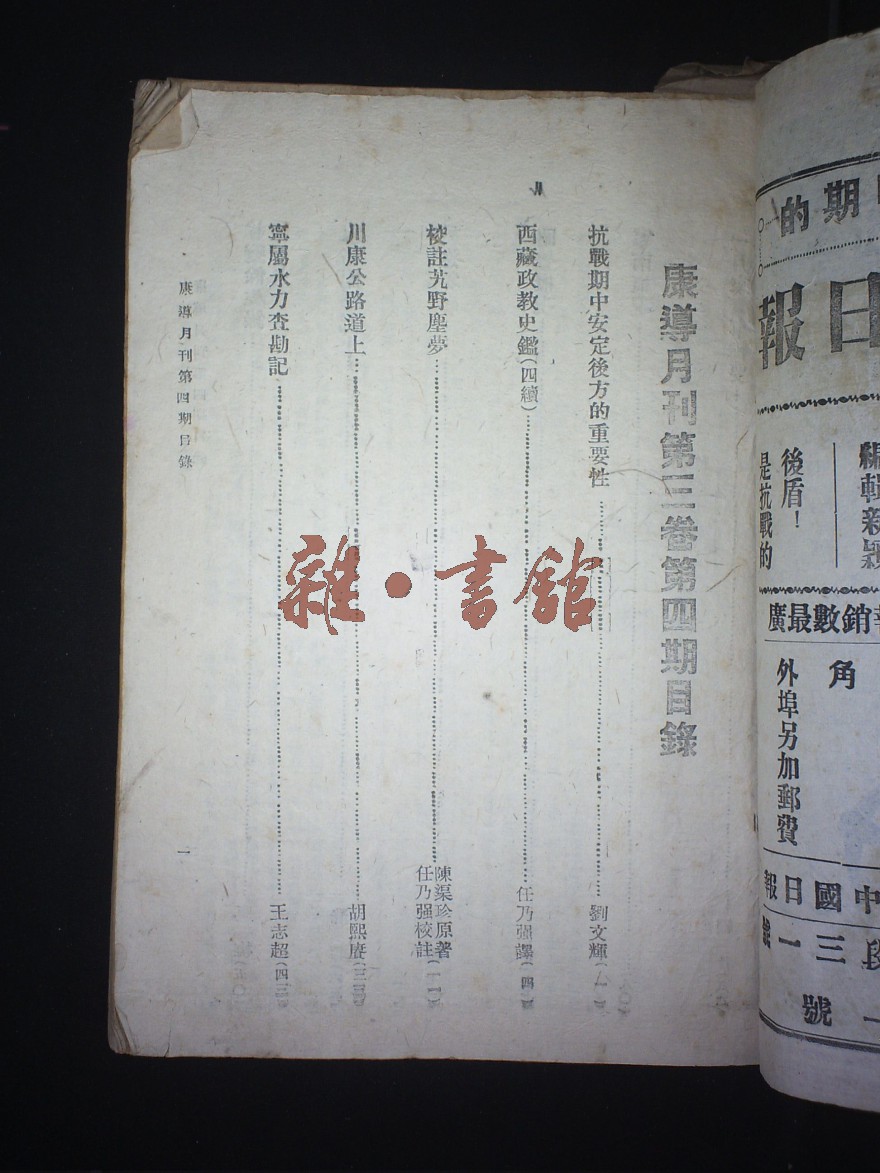 康導月刊第三卷第四期目錄
抗戰期中安定後方的重要性……劉文輝(一)
西藏政教史鑑(四續)……任乃强譯(四)
校註艽野塵夢……陳渠珍原著
任乃强校註
川康公路道上……胡熙庚
寧屬水力查勘記……王志超(四三)
康導月刊第四期目錄
一
雜·書館
期的
日報
編輯新穎
後盾!
是抗戰的
銷數最廣
角
外埠另加郵費
中國日報
段三一號
號